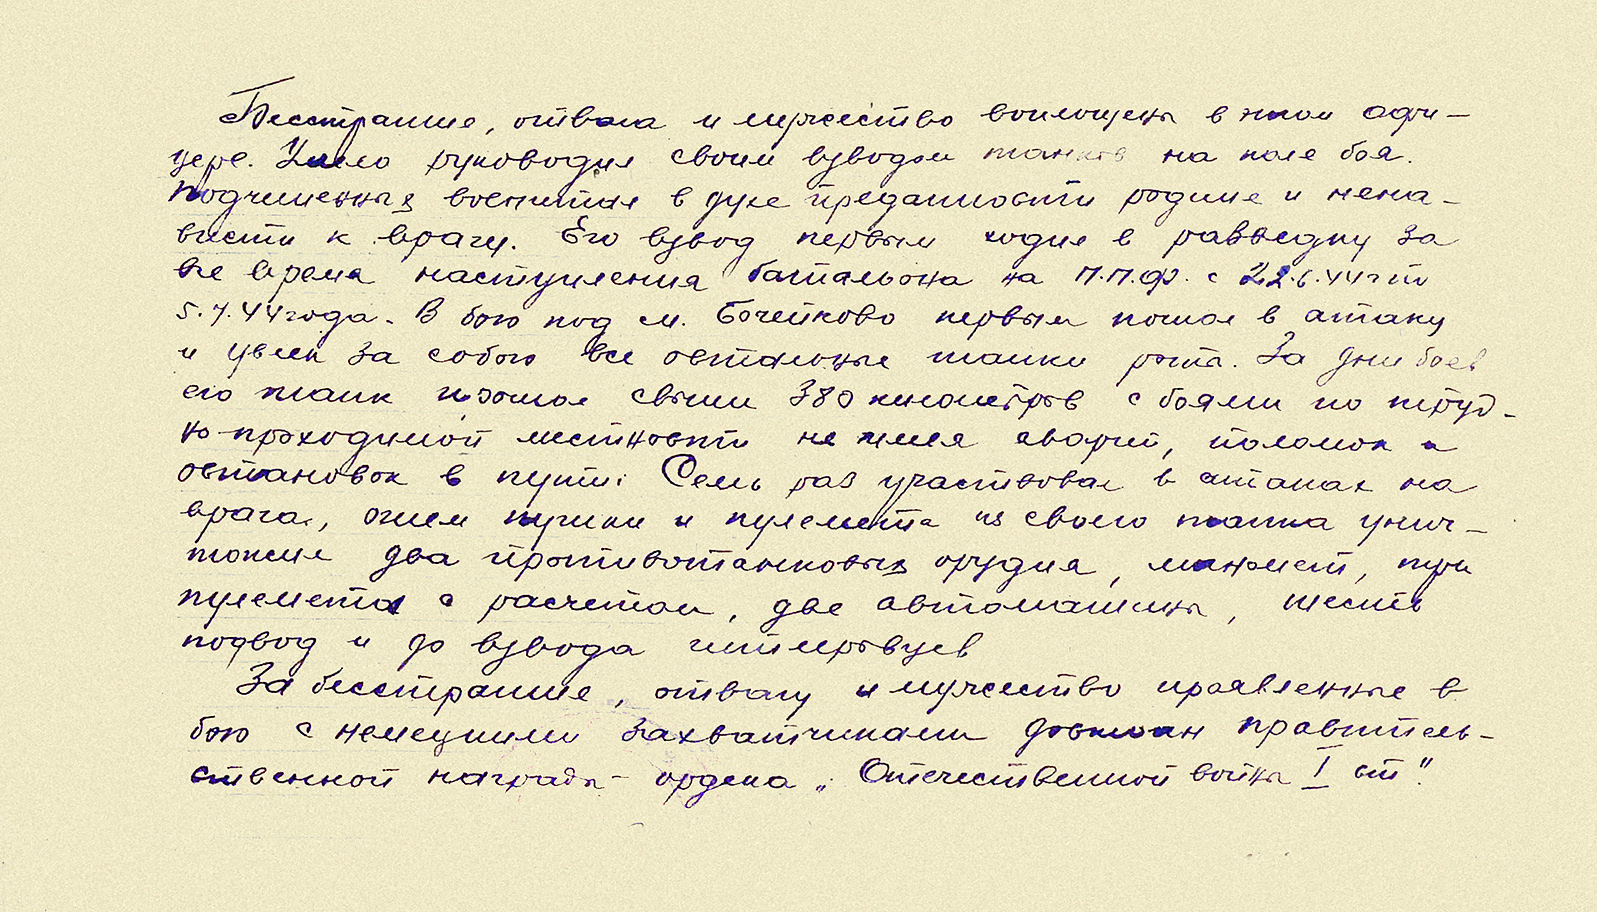 Бесстрашие, отвага и мужество воплощены в этом офи-
цере. Умело руководил своим взводом танков на поле боя.
Подчиненных воспитал в духе преданности родине и нена-
висти к врагу. Его взвод первым ходил в разведку за
все время наступления батальона на П.П.Ф. с 22.6.44г по
5.7.44 года. В бою под м. Бочейково первым пошол в атаку
и увлек за собою все остальные танки роты. За дни боев
его танк прошол свыше 380 километров с боями по труд-
но-проходимой местности не имея аварий, поломок и
остановок в пути. Семь раз участвовал в атаках на
врага, огнем пушки и пулемета из своего танка унич-
тожил два противотанковых орудия, миномет, три
пулемета с расчетом, две автомашины, шесть
подвод и до взвода гитлеровцев
За бесстрашие, отвагу и мужество проявленные в
бою с немецкими захватчиками достоин правитель-
ственной награды - ордена „Отечественной войны I ст".